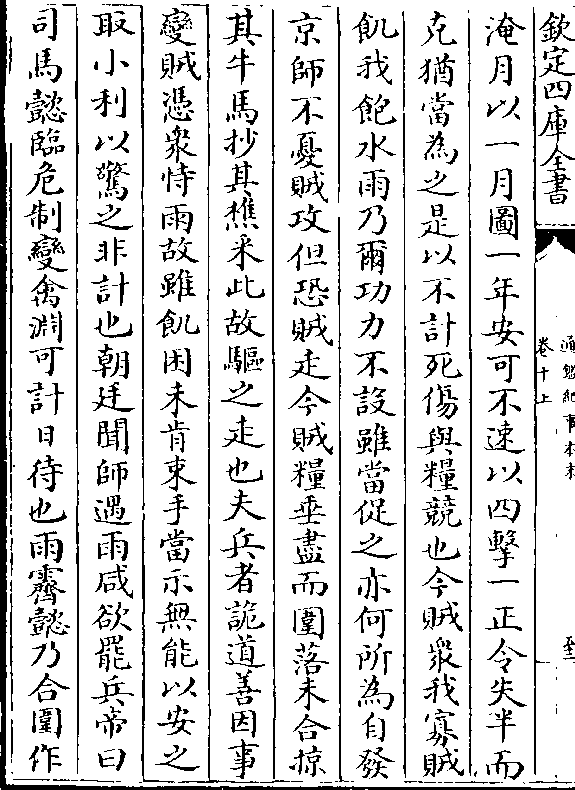 欽定四庫全書
通鑑紀事本末
卷十上
淹月以一月圖一年安可不速以四擊一正令失半而
克猶當為之是以不計死傷與糧競也今賊衆我寡賊
飢我飽水雨乃爾功力不設雖當促之亦何所為自發
京師不憂賊攻但恐賊走今賊糧垂盡而圍落未合掠
其牛馬抄其樵采此故驅之走也夫兵者詭道善因事
變賊憑衆恃雨故雖飢困未肯束手當示無能以安之
取小利以驚之非計也朝廷聞師遇雨咸欲罷兵帝曰
司馬懿臨危制變禽淵可計日待也雨霽懿乃合圍作